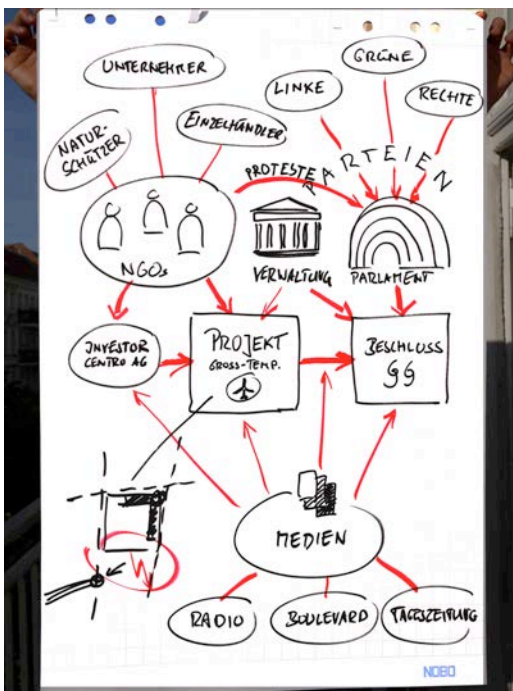 UNTERNEHMER
GRÜNE
LINKE
RECHTE
NATUR-
SCHÜTZER
EINZELHÄNDLER
PROTESTE
PARTEIEN
NGOs
VERWALTUNG
PARLAMENT
INVESTOR
CENTRO AG
PROJEKT
GROSS-TEMP.
BESCHLUSS
§§
MEDIEN
RADIO
BOULEVARD
TAGESZEITUNG
NOBO